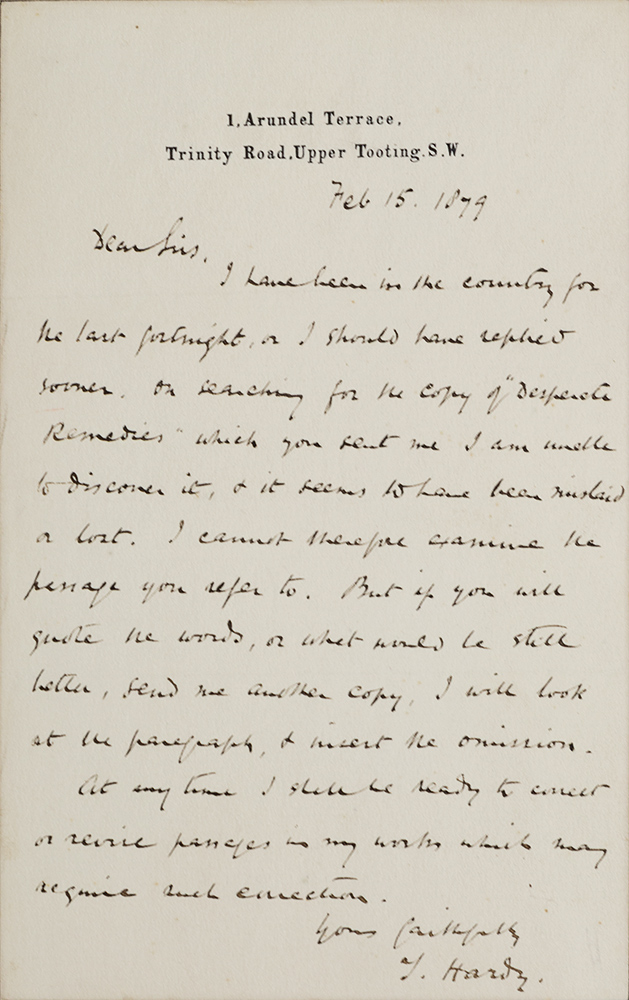 1, Arundel Terrace,
Trinity Road, Upper Tooting. S.W.
Feb 15. 1879
Dear Sirs,
I have been in the country for
the last fortnight, or I should have replied
sooner. On searching for the copy of "Desperate
Remedies" which you sent me I am unable
to discover it, & it seems to have been mislaid
or lost. I cannot therefore examine the
passage you refer to. But if you will
quote the words, or what would be still
better, send me another copy, I will look
at the paragraph, & insert the omission.
At any time I shall be ready to correct
or revise passages in my works which may
require such correction.
Yours faithfully
T. Hardy.